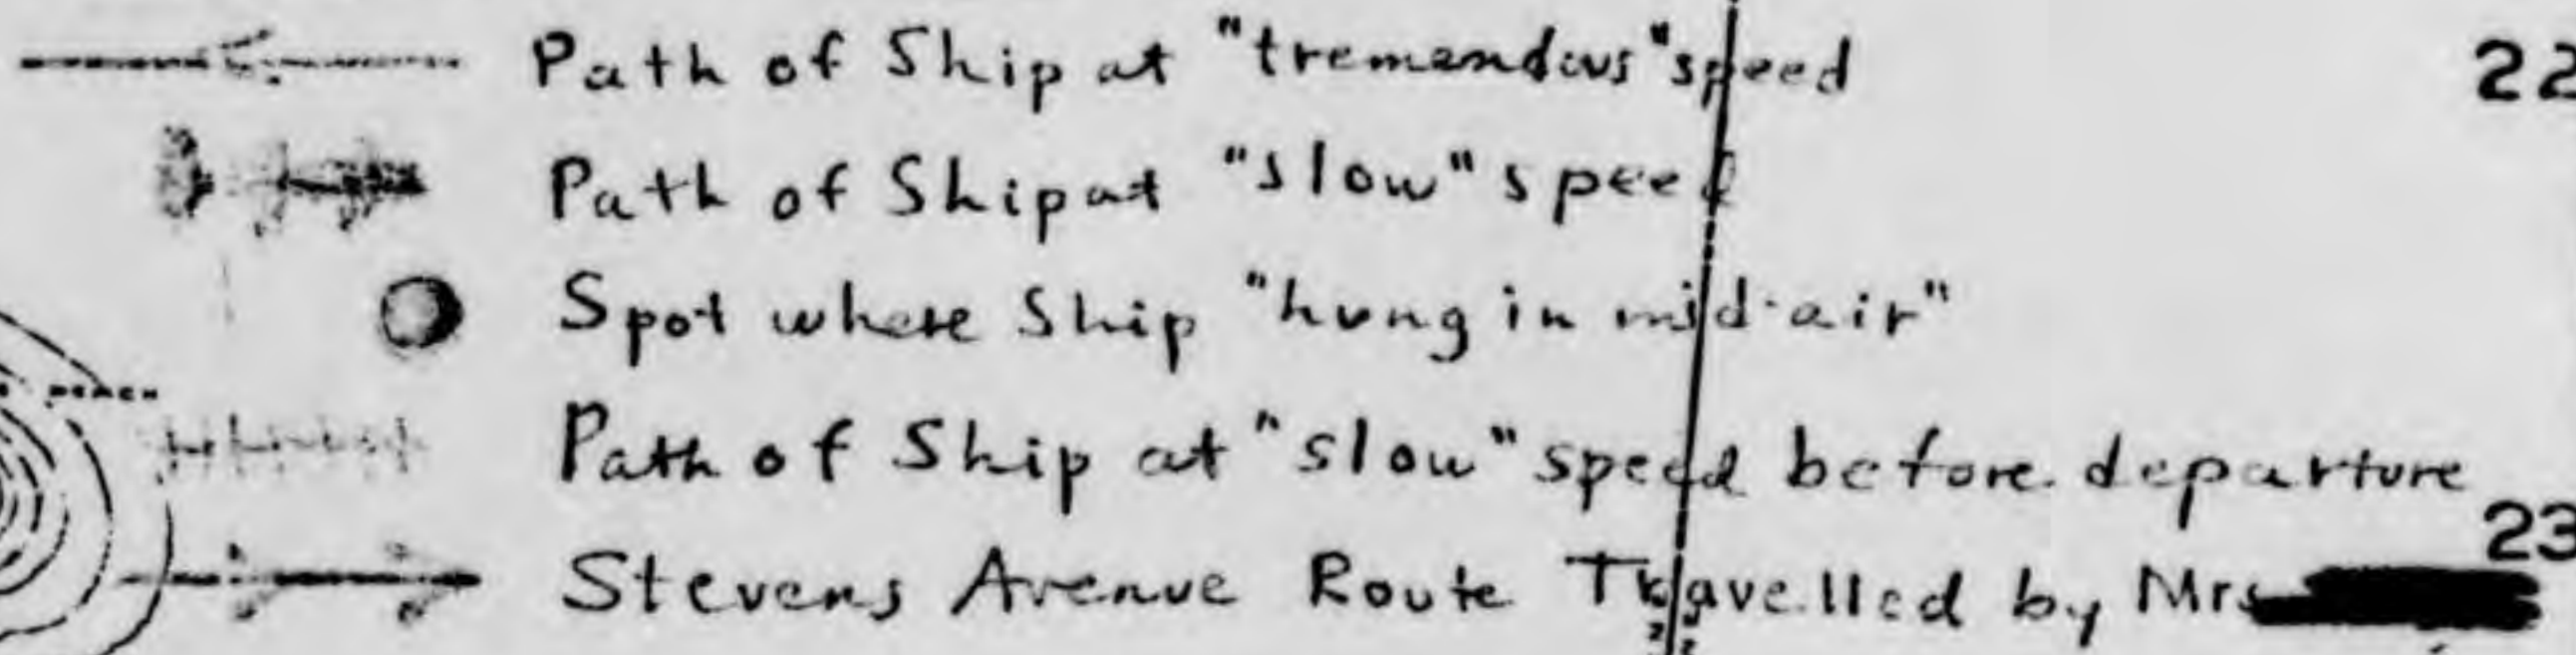 Path of Ship at "tremendous" speed
22
Path of Ship at "slow" speed
Spot where Ship "hung in mid-air"
Path of Ship at "slow" speed before departure
23
Stevens Avenue Route Travelled by Mrs